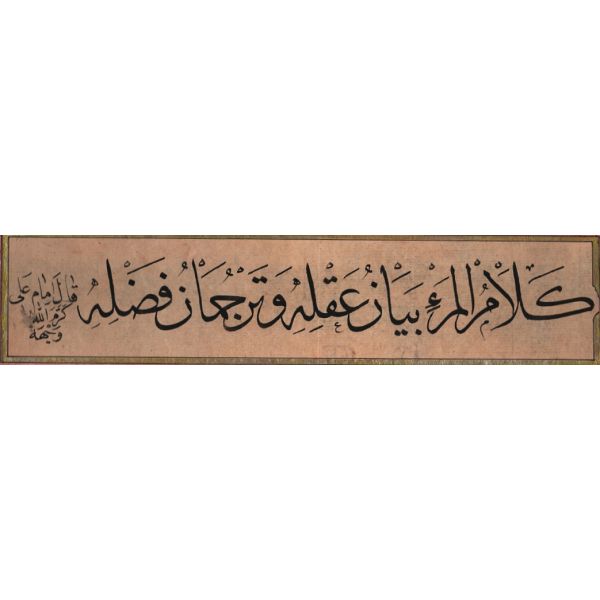 كَلَامُ الْمَرْءِ بَيَانُ عَقْلِهِ وَتَرْجُمَانُ فَضْلِهِ
قال امام على
كرم الله
وجهه